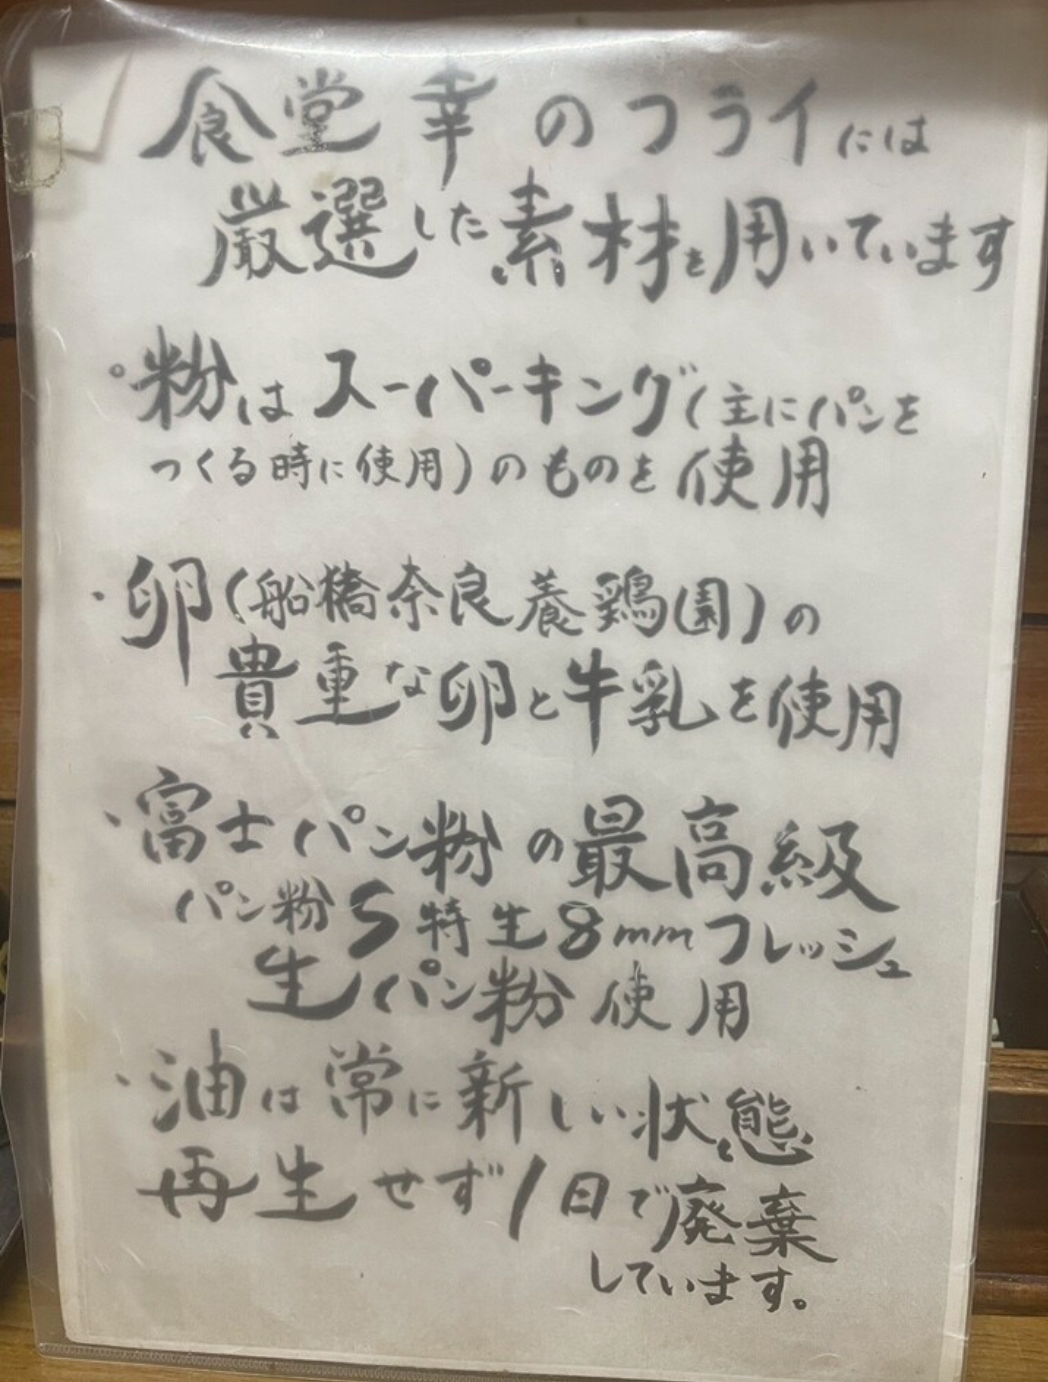 食堂 幸のフライには
厳選した素材を用いています
。粉はスーパーキング(主にパンを
つくる時に使用)のものを使用
・卵(船橋奈良養鶏園)の
貴重な卵と牛乳を使用
・富士パン粉の最高級
パン粉S特生8mmフレッシュ
生パン粉使用
・油は常に新しい状態
再生せず1日で廃棄
しています。